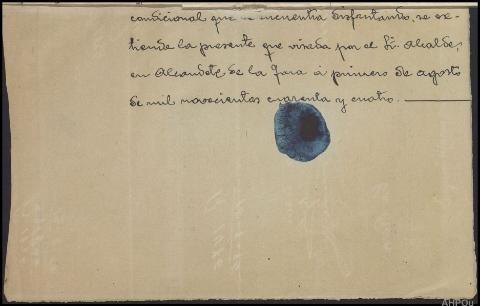 condicional que se encuentra disfrutando, se ex-
tiende la presente que visada por el Sr. Alcalde,
en Alcaudete de la Jara á primero de agosto
de mil novecientos cuarenta y cuatro.
AHPOu